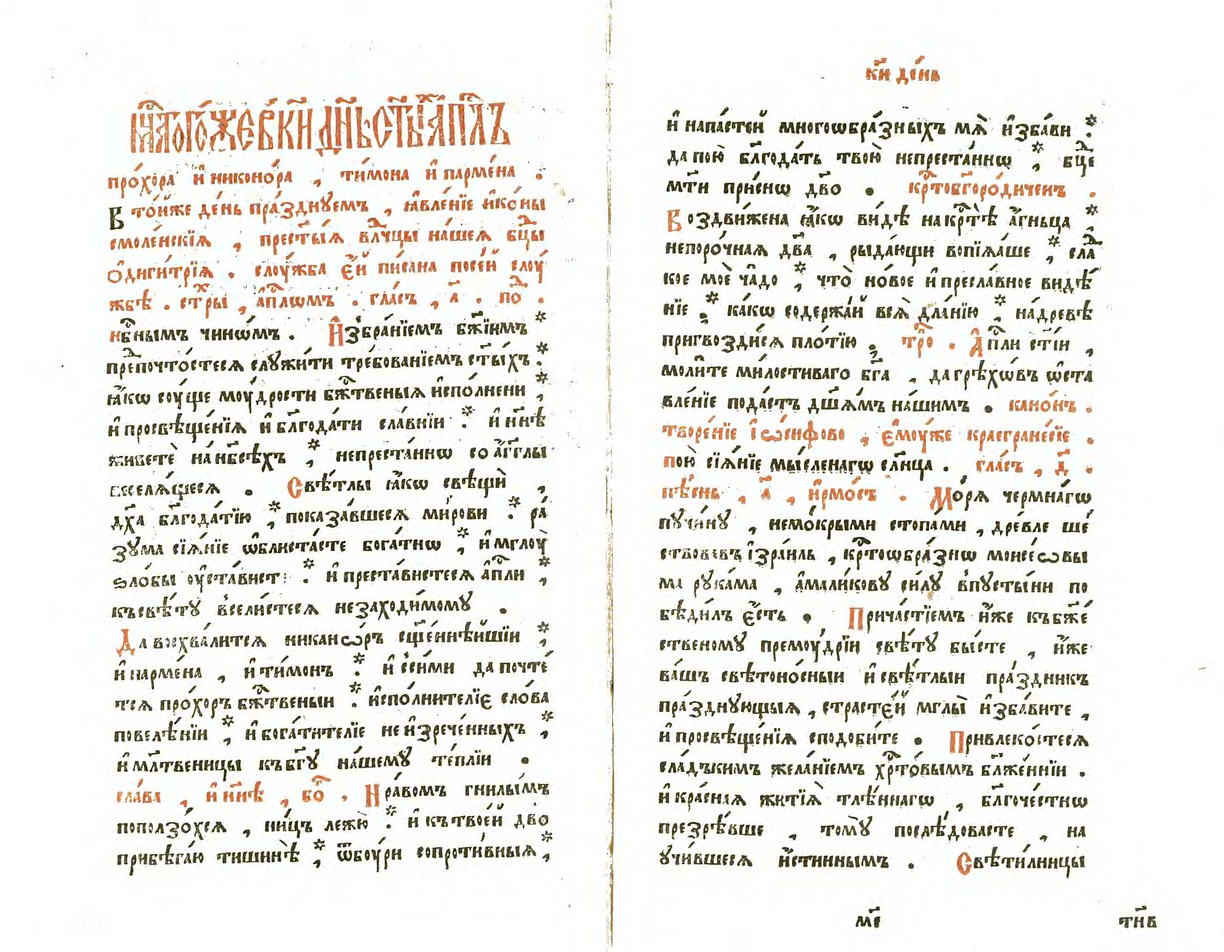 М҃ц̑а того́же в҃ к҃и дн҃ь ст҃ы́хъ а҆пⷭ҇лъ
про́хора и҆ никоно́ра , ти́мона и҆ парме́на .
В то́йже де́нь пра́зднꙋемъ , ꙗ҆вле́нїе и҆ко́ны
смоле́нскїѧ , прест҃ы́ѧ влⷣчцы на́шеѧ бцⷣы
Ѻ҆диги́трїѧ . слꙋ́жба є҆́й пи́сана посе́й слꙋ́
жбѣ . ст҃ры̀ , а҆пⷭ҇лѡмъ . гла́съ , а҃ . поⷣ .
нб҃нымъ чинѡ́мъ . И҆збра́нїемъ бж҃їимъ *
препочто́стесѧ слꙋжи́ти тре́бованїемъ ст҃ы́хъ .*
ꙗ҆́кѡ сꙋ́ще мꙋ́дрости бжⷭ҇твеныѧ и҆спо́лнени , *
и҆ просвѣще́нїѧ и҆ блг҃ода́ти сла́внїи .* и҆ нн҃ѣ
живе́те на нб҃сѣ́хъ , * непреста́ннѡ со а҆́гг҃лы
веселѧ́щесѧ . Свѣ́тлы ꙗ҆́кѡ свѣщи̑ ,
дх҃а блг҃ода́тїю , * показа́вшесѧ ми́рови .* ра́
зꙋма сїѧ́нїе ѡ҆блиста́сте бога́тнѡ , * и҆ мглꙋ̀
ѕло́бы ᲂу҆ста́вист .* и҆ преста́вистесѧ а҆пⷭ҇ли , *
къ свѣ́тꙋ всели́стесѧ незаходи́момꙋ .
Да восхва́литсѧ никанѡ́ръ сщ҃е́ннѣйшїи , *
и҆ парме́на , и҆ ти́монъ .* и҆ сси́ми да почте́
тсѧ про́хоръ бжⷭ҇твеныи .* и҆спо́лнителїе сло́ва
повелѣ́нїи , * и҆ богати́телїе неи҆зрече́нныхъ , *
и҆ мл҃твеницы къ бг҃ꙋ на́шемꙋ те́плїи .
сла́ва , и҆ нн҃ѣ , боⷣ . Нра́вомъ гнилы́мъ
поползо́хсѧ , ни́цъ лежю̀ .* и҆ къ твое́й дв҃о
прибѣга́ю тишинѣ̀ , * ѿ бꙋ́ри сопроти́вныѧ , *
к҃и де́нѧ
и҆ напа́стей многоѡбра́зныхъ мѧ̀ и҆зба́ви .*
да пою̀ блг҃ода́ть твою̀ непреста́ннѡ , * бцⷣе
мт҃и при́снѡ дв҃о . крⷭ҇тобг҃оро́диченъ .
Воздви́жена ꙗ҆́кѡ ви́дѣ на крⷭ҇тѣ̀ а҆́гньца , *
непоро́чнаѧ дв҃а , рыда́ющи вопїѧ́ше , * сла́
кое моѐ ча́до , * что̀ но́вое и҆ пресла́вное видѣ́
нїе .* ка́кѡ содержа́й всѧ̀ дла́нїю , * на дре́вѣ
пригвозди́сѧ пло́тїю . троⷫ҇ . А҆пⷭ҇ли ст҃і́и ,
моли́те ми́лостиваго бг҃а , да грѣхѡ́въ ѡ҆ста
вле́нїе пода́стъ дш҃а́мъ на́шимъ . кано́нъ .
творе́нїе і҆ѡ́сифово , є҆мꙋ́же краегране́сїе .
пою̀ сїѧ́нїе мы́сленагѡ сл҃нца . гла́съ , д҃ .
пѣ́снь , а҃ , и҆рмо́съ . Мо́рѧ чермна́гѡ
пꙋчи́нꙋ , немо́крыми стопа́ми , дре́вле ше́
ствовавъ і҆зра́иль , крⷭ҇тоѡбра́знѡ моисе́ѡвы
ма рꙋка́ма , а҆мали́ковꙋ си́лꙋ впꙋсты́ни по
бѣди́лъ є҆́сть . Прича́стїемъ и҆́же къ бж҃е́
ственомꙋ премꙋ́дрїи свѣ́тꙋ бы́сте , и҆́же
ва́шъ свѣтоно́сныи и҆ свѣ́тлыи пра́здникъ
пра́зднꙋющыѧ , страсте́й мглы̀ и҆зба́вите ,
и҆ просвѣще́нїѧ сподо́бите . Привлеко́стесѧ
сла́дъкимъ жела́нїемъ хрⷭ҇то́вымъ бл҃же́ннїи .
и҆ кра́снаѧ житїѧ̀ тлѣ́ннагѡ , блг҃оче́стнѡ
презрѣ́вше , томꙋ̀ послѣ́довасте , на
ꙋчи́вшесѧ и҆́стиннымъ . Свѣти́лницы
м҃е
тн҃в